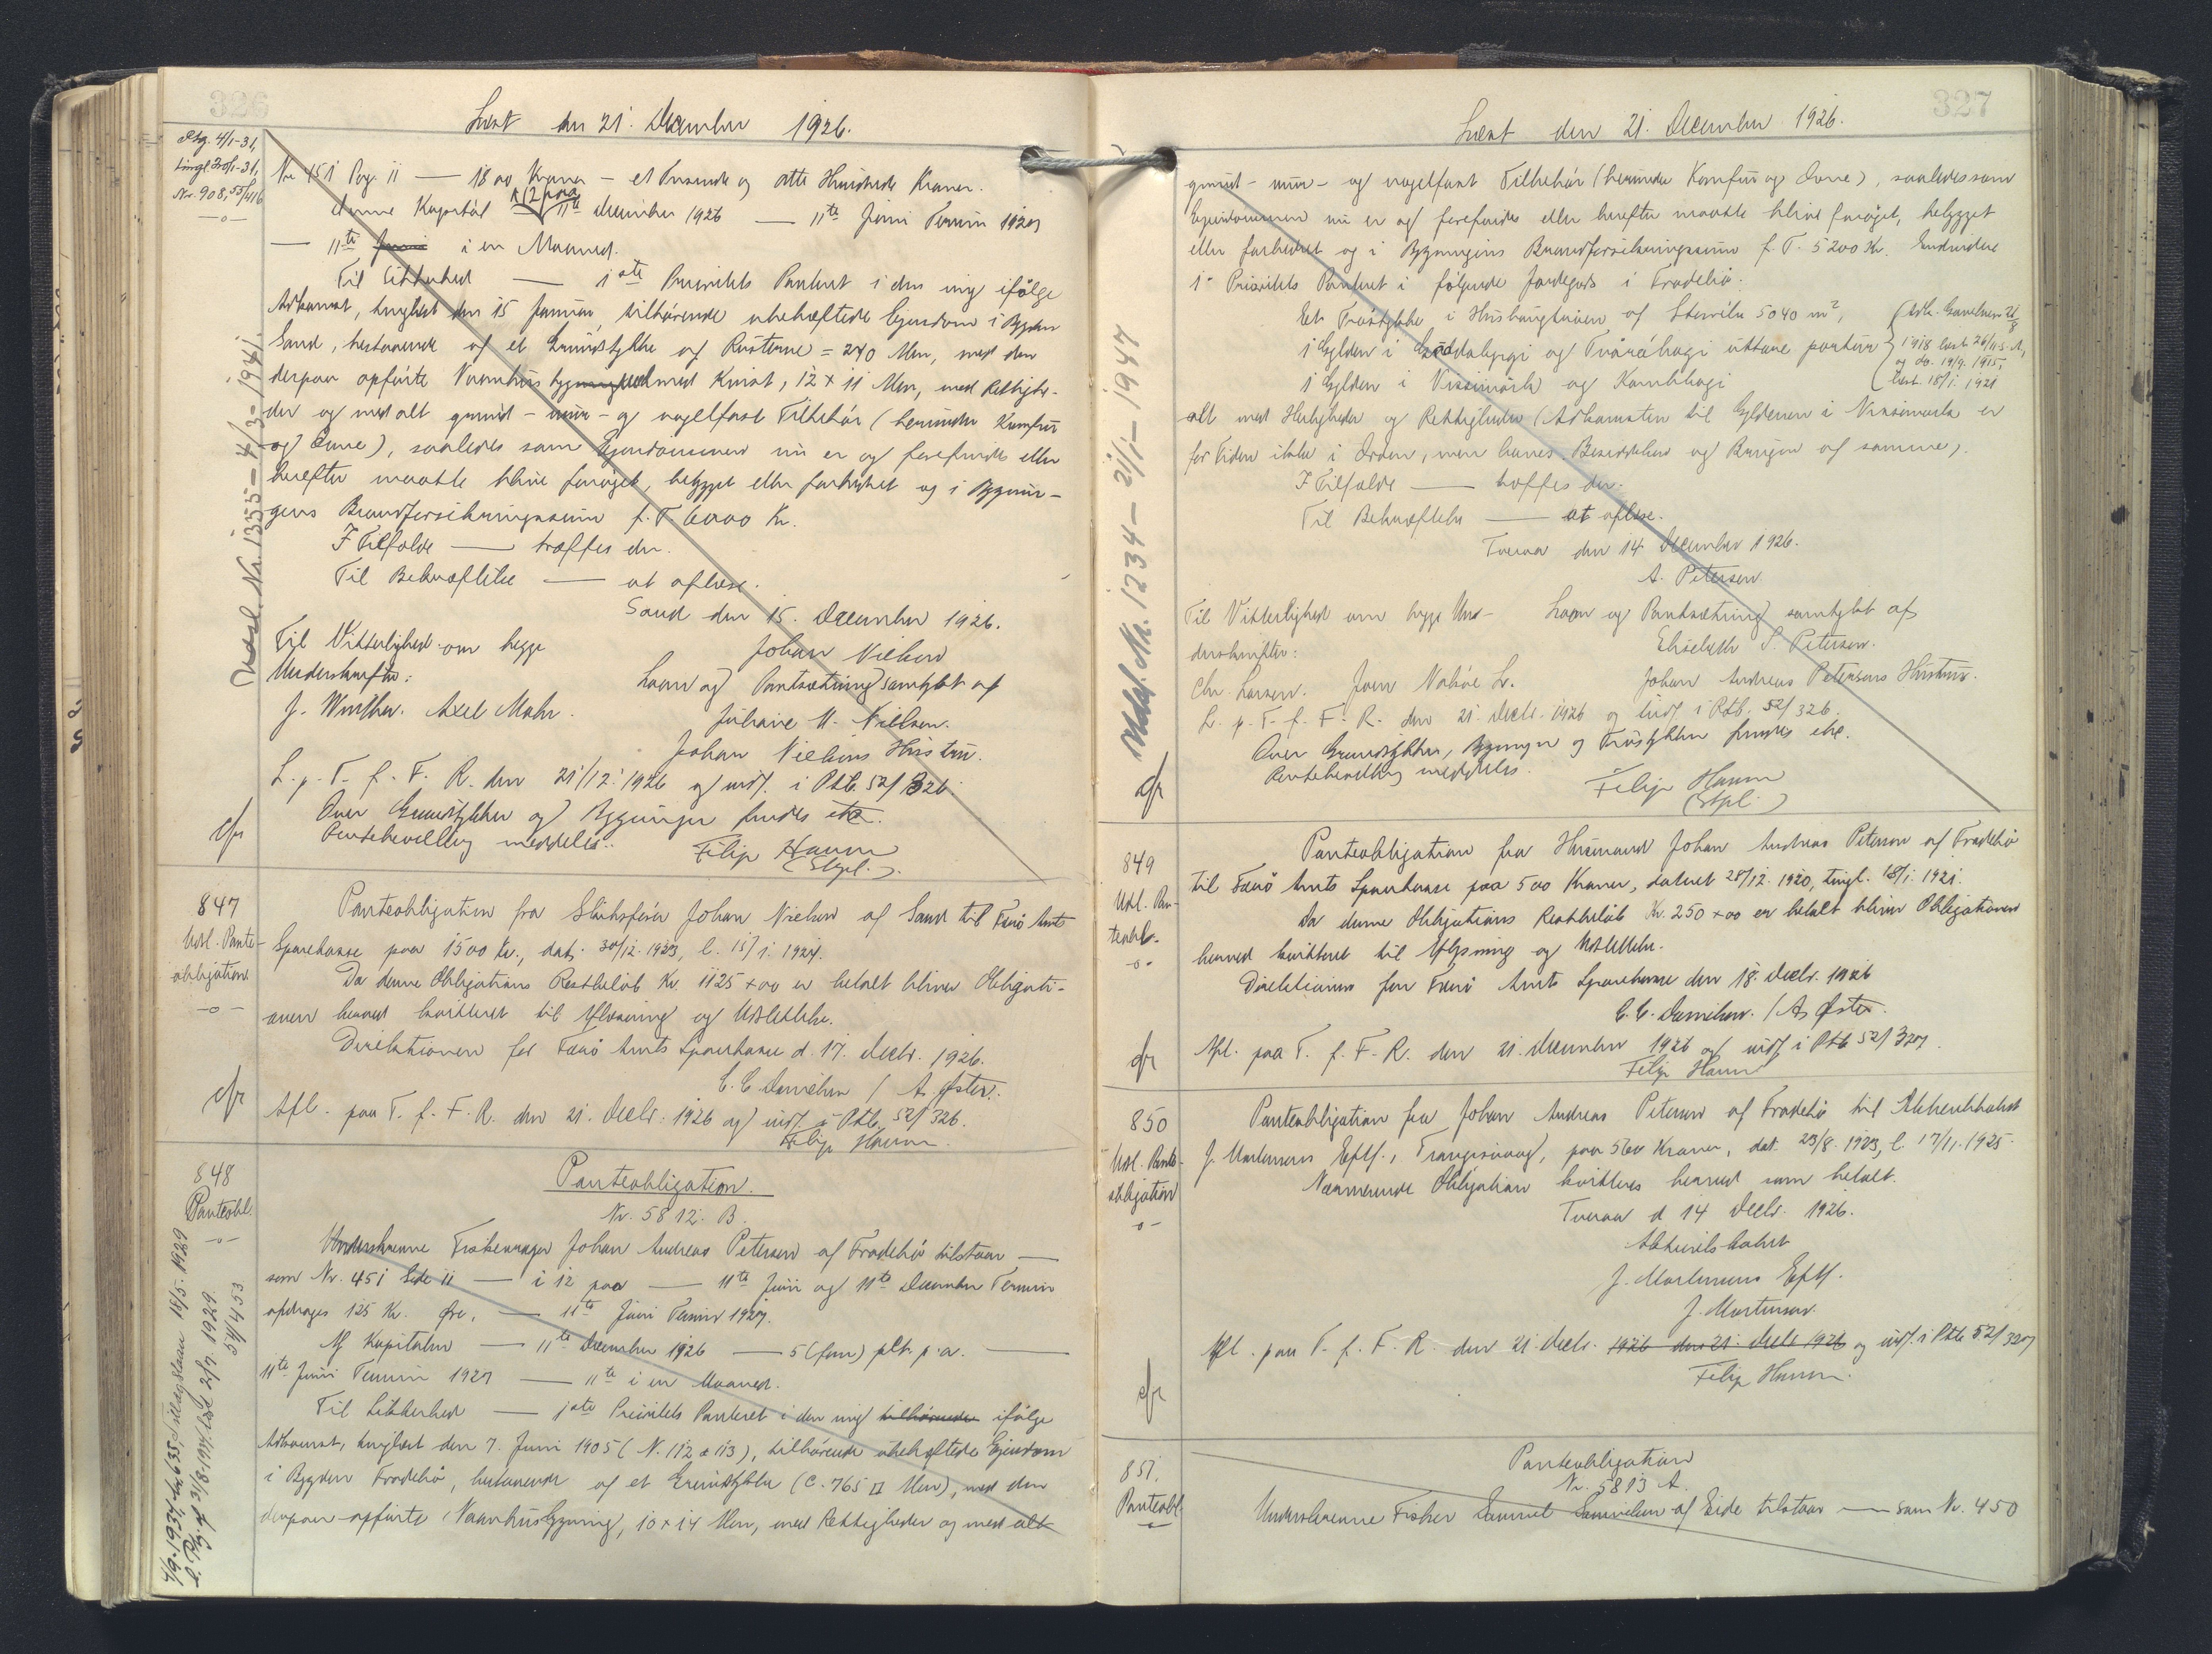 326
Læst den 21. December 1926.
Nr 451 Pag. 11 — 1800 Kroner — et Tusinde og otte Hundrede Kroner.
denne Kapital 11te December 1926 — 11te Juni Termin 1927
— 11te Juni i en Maaned.
Til Sikkerhed — 1ste Prioritets Panteret i den mig ifølge
Adkomst, tinglæst den 15 Januar tilhørende ubehæftede Ejendom i Bygden
Sand, bestaaende af et Grundstykke af = 240 Alen, med den
derpaa opførte Vaanhusbygning med Kvist, 12 x 11 Alen, med Rettighe-
der og med alt grund- mur- og nagelfast Tilbehør (herunder Komfur
og Ovne), saaledes som Ejendommen nu er og forefindes eller
herefter maatte blive forøget, bebygget eller forbedret og i Bygnin-
gens Brandforsikringssum f. T. 6000 Kr.
I Tilfælde — træffes der.
Til Bekræftelse — at aflæse.
Sand den 15. December 1926.
Til Vitterlighed om begge
Underskrifter:
Johan Nielsen
Laan og Pantsætning samtykt af
J. Winther. Axel Mohr.
M. Nielsen.
Johan Nielsens Hustru.
L. p. T. f. F. R. den 21/12. 1926 og indf. i Ptb. 52/326.
Over Grundstykker og Bygninger findes ikke.
Rentebevilling meddeles.
Filip Hamm
(Stpl.).
cfr
Nr. 908, 55/416
Udsl. Nr. 1355 - 4/3 - 1941.
847
Udsl. Pante-
obligation
-o-
Panteobligation fra Johan Nielsen af Sand til Færø Amts
Sparekasse paa 1500 Kr., dat. 30/12. 1923, l. 15/1. 1924.
Da denne Obligations Restbeløb Kr. 1125 x 00 er betalt bliver Obligati-
onen herved kvitteret til Aflæsning og Udslettelse.
Direktionen for Færø Amts Sparekasse d. 17. Decbr. 1926.
C. C. Danielsen / A. Øster.
Afl. paa T. f. F. R. den 21. Decbr. 1926 og indf. i Ptb. 52/326.
Filip Hamm.
cfr
848
Panteobl.
-o-
Panteobligation.
Nr. 5812. B.
Underskrevne Johan Andreas Petersen af Frodebø tilstaar —
som Nr. 451 Side 11 — i 12 paa — 11te Juni og 11te December Termin
afdrages 125 Kr. Øre, — 11te Juni Termin 1927.
Af Kapitalen — 11te December 1926 — 5 (fem) pCt. p. a. —
11te Juni Termin 1927 — 11te i en Maaned.
Til Sikkerhed — 1ste Prioritets Panteret i den mig tilhørende ifølge
Adkomst, tinglæst den 7. Juni 1905 (N. 112 & 113), tilhørende ubehæftede Ejendom
i Bygden Frodebø, bestaaende af et Grundstykke (c. 765 □ Alen), med den
derpaa opførte Vaanhusbygning, 10 x 14 Alen, med Rettigheder og med alt
54/453
327
Læst den 21. December 1926.
grund- mur- og nagelfast Tilbehør (herunder Komfur og Ovne), saaledes som
Ejendommen nu er og forefindes eller herefter maatte blive forøget, bebygget
eller forbedret og i Bygningens Brandforsikringssum f. T. 5200 Kr. Endvidere
1. Prioritets Panteret i følgende Jordegods i Frodebø:
Et Trøstykke i af 5040 m²,
1 Gylden i og Tvøráhagi uttane portur
1 Gylden i og Kambhagi
1918 læst 26/11 s. A.
og do. 14/9. 1915,
læst 18/1. 1921
alt med Herligheder og Rettigheder (Adkomsten til Gyldenen i er
for Tiden ikke i Orden, men haves Besiddelse og Brugen af samme).
I Tilfælde — træffes der.
Til Bekræftelse — at aflæse.
Tveraa den 14 December 1926.
A. Petersen.
Til Vitterlighed om begge Un-
derskrifter:
Laan og Pantsætning samtykt af
Elisebeth S. Petersen.
Chr. Larsen. Joen
Johan Andreas Petersens Hustru.
L. p. T. f. F. R. den 21. Decbr. 1926 og indf. i Ptb. 52/326.
Over Grundstykker, Bygninger og Trøstykker findes ikke.
Rentebevilling meddeles.
Filip Hamm
(Stpl.)
cfr
Udsl. Nr. 1234 - 21/1 - 1947
849
Udsl. Pan-
teobl.
-o-
Panteobligation fra Husmand Johan Andreas Petersen af Frodebø
til Færø Amts Sparekasse paa 500 Kroner, dateret 28/12. 1920, tingl. 18/1. 1921.
Da denne Obligations Restbeløb Kr. 250 x 00 er betalt bliver Obligationen
herved kvitteret til Aflysning og Udslettelse.
Direktionen for Færø Amts Sparekasse den 18. Decbr. 1926
C. C. Danielsen. / A. Øster.
Afl. paa T. f. F. R. den 21. December 1926 og indf. i Ptb 52/327.
Filip Hamm
cfr
850
Udsl. Pante-
obligation
-o-
Panteobligation fra Johan Andreas Petersen af Frodebø til Aktieselskabet
J. Mortensens Eftf., Trangisvaag, paa 5600 Kroner, dat. 23/8. 1923, l. 17/11. 1925.
Nærværende Obligation kvitteres herved som betalt.
Tveraa d 14 Decbr. 1926.
Aktieselskabet
J. Mortensens Eftf.
J. Mortensen.
Afl. paa T. f. F. R. den 21. Decbr. 1926 den 21. Decbr 1926 og indf. i Ptb 52/327
Filip Hamm.
cfr
851.
Panteobl.
Panteobligation
Nr. 5813 A.
Underskrevne Fisker Samuel Samuelsen af Eide tilstaar — som Nr. 450